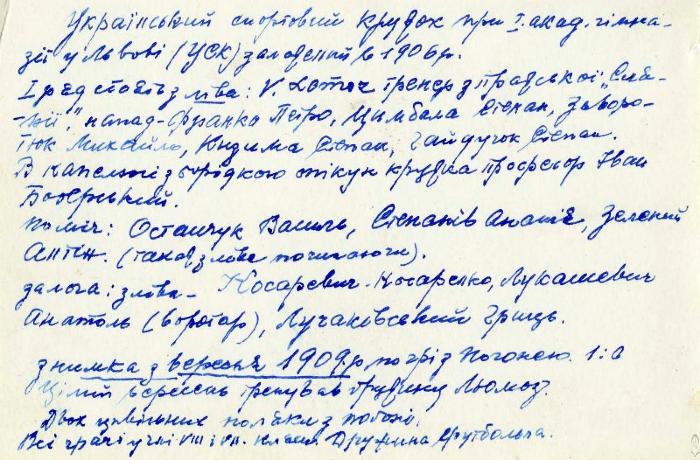 Український спортовий кружок при І. акад. гімна-
зії у Львові (УСК) заложений в 1906 р.
І ряд стоять зліва: V. Коточ тренер з празької „Слa-
вії", напад - Франко Петро, Цимбала Степан, Заворо-
тюк Михайло, Кизима Степан, Гайдучок Степан.
В капелюсі з борідкою опікун кружка професор Іван
Боберський.
поміч: Остапчук Василь, Степанів Ананій, Зелений
Антін. (також зліва починаючи).
далога: зліва - Косаревич - Косаренко, Лукашевич
Анатоль (воротар), Лучаківський Гриць.
знимка з вересня 1909. р по грі з Погонею. 1:0
Цілий вересень тренував дружину
Двох цивільних поляки з погоні.
Всі грачі учні VIII і VII. кляси Дружина Футбольна.